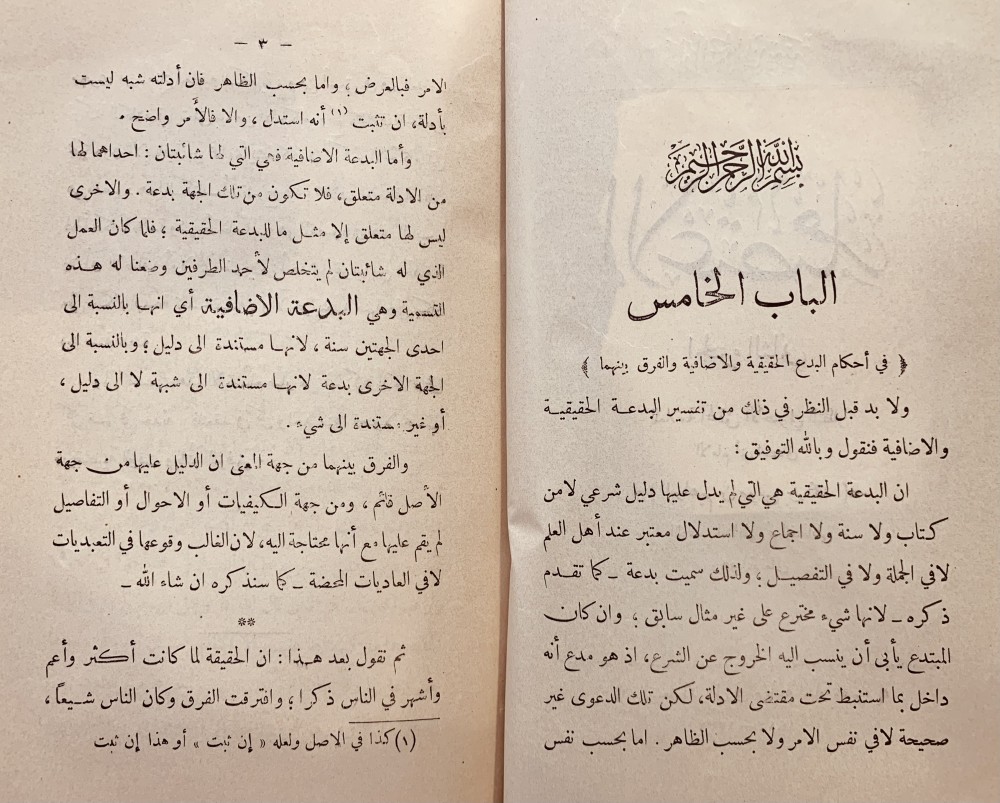 بسم الله الرحمن الرحيم
الباب الخامس
﴿ في أحكام البدع الحقيقية والاضافية والفرق بينهما ﴾
ولا بد قبل النظر في ذلك من تفسير البدعة الحقيقية
والاضافية فنقول وبالله التوفيق :
ان البدعة الحقيقية هي التي لم يدل عليها دليل شرعي لامن
كتاب ولا سنة ولا اجماع ولا استدلال معتبر عند أهل العلم
لافي الجملة ولا في التفصيل ؛ ولذلك سميت بدعة ـ كما تقدم
ذكره ـ لانها شيء مخترع على غير مثال سابق ؛ وان كان
المبتدع يأبى أن ينسب اليه الخروج عن الشرع، اذ هو مدع أنه
داخل بما استنبط تحت مقتضى الادلة، لكن تلك الدعوى غير
صحيحة لافي نفس الامر ولا بحسب الظاهر . اما بحسب نفس
– ٣ –
الامر فبالعرض ؛ واما بحسب الظاهر فان أدلته شبه ليست
بأدلة، ان تثبت (١) أنه استدل ، والا فالأمر واضح .
وأما البدعة الاضافية فهي التي لها شائبتان : احداهما لها
من الادلة متعلق، فلا تكون من تلك الجهة بدعة . والاخرى
ليس لها متعلق إلا مثل ما للبدعة الحقيقية ؛ فلما كان العمل
الذي له شائبتان لم يتخلص لأحد الطرفين وضعنا له هذه
التسمية وهي البدعة الاضافية أي انها بالنسبة الى
احدى الجهتين سنة ، لانها مستندة الى دليل ؛ وبالنسبة الى
الجهة الاخرى بدعة لانها مستندة الى شبهة لا الى دليل ،
أو غير مستندة الى شيء .
والفرق بينهما من جهة المعنى ان الدليل عليها من جهة
الأصل قائم ، ومن جهة الكيفيات أو الاحوال أو التفاصيل
لم يقم عليها مع أنها محتاجة اليه، لان الغالب وقوعها في التعبديات
لافي العاديات المحضة ـ كما سنذكره ان شاء الله ـ
**
ثم نقول بعد هذا : ان الحقيقة لما كانت أكثر وأعم
وأشهر في الناس ذكرا ؛ وافترقت الفرق وكان الناس شيعاً،
(١) كذا في الاصل ولعله « إن ثبت » أو هذا إن ثبت